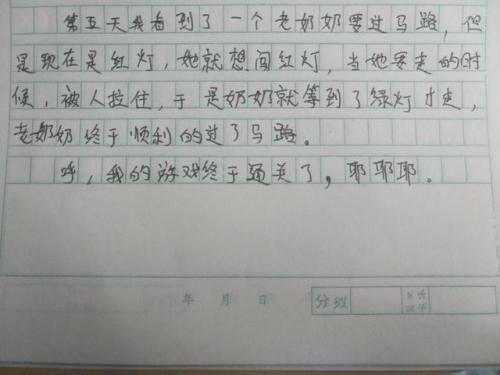 第五天我看到了一个老奶奶要过马路，但
是现在是红灯，她就想闯红灯，当她要走的时
候，被人拉住，于是奶奶就等到了绿灯才走，
老奶奶终于顺利的过了马路。
呼，我的游戏终于通关了，耶耶耶。
年 月 日 分数